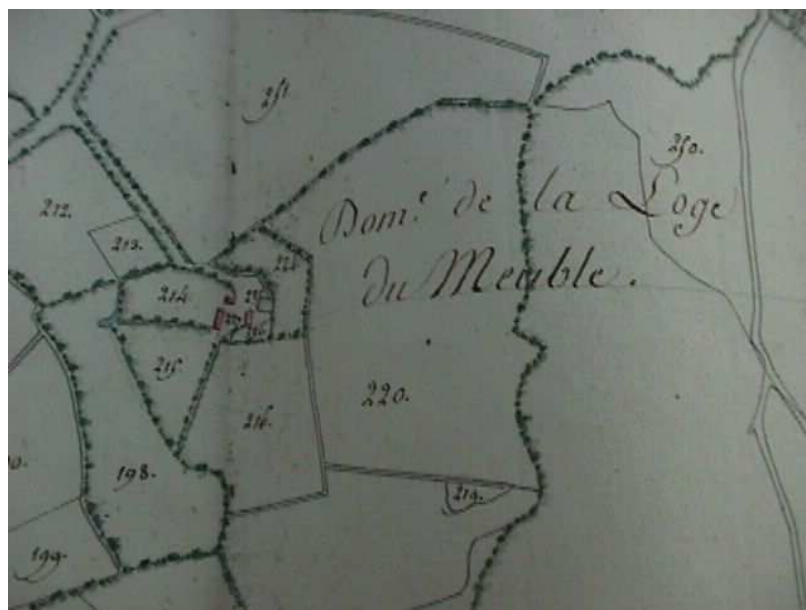 251.
250.
212.
213.
Dom.e de la Loge
du Meuble.
214.
215.
216.
220.
198.
219.
199.